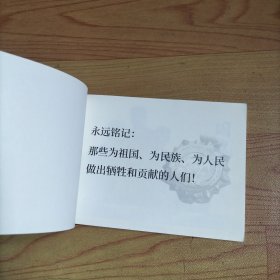 永远铭记：
那些为祖国、为民族、为人民
做出牺牲和贡献的人们！